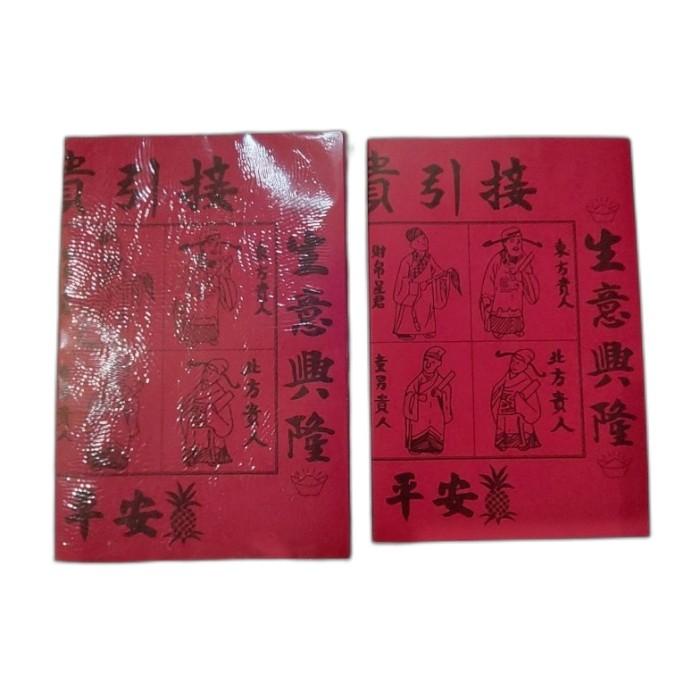 接引貴
生意興隆
東方貴人
北方貴人
平安
接引貴
生意興隆
東方貴人
財帛星君
北方貴人
童男貴人
平安